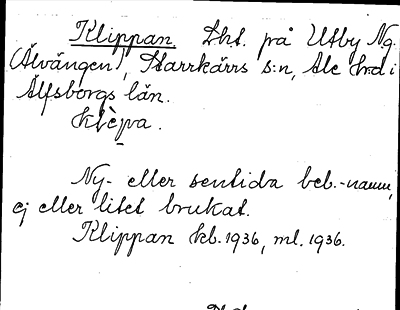 Klippan. Lht. på Utby Ng.
(Älvängen), Starrkärrs s:n, Ale hd i
Älfsborgs län.
Ny- eller sentida beb.-namn,
ej eller litet brukat.
Klippan kb. 1936, ml. 1936.